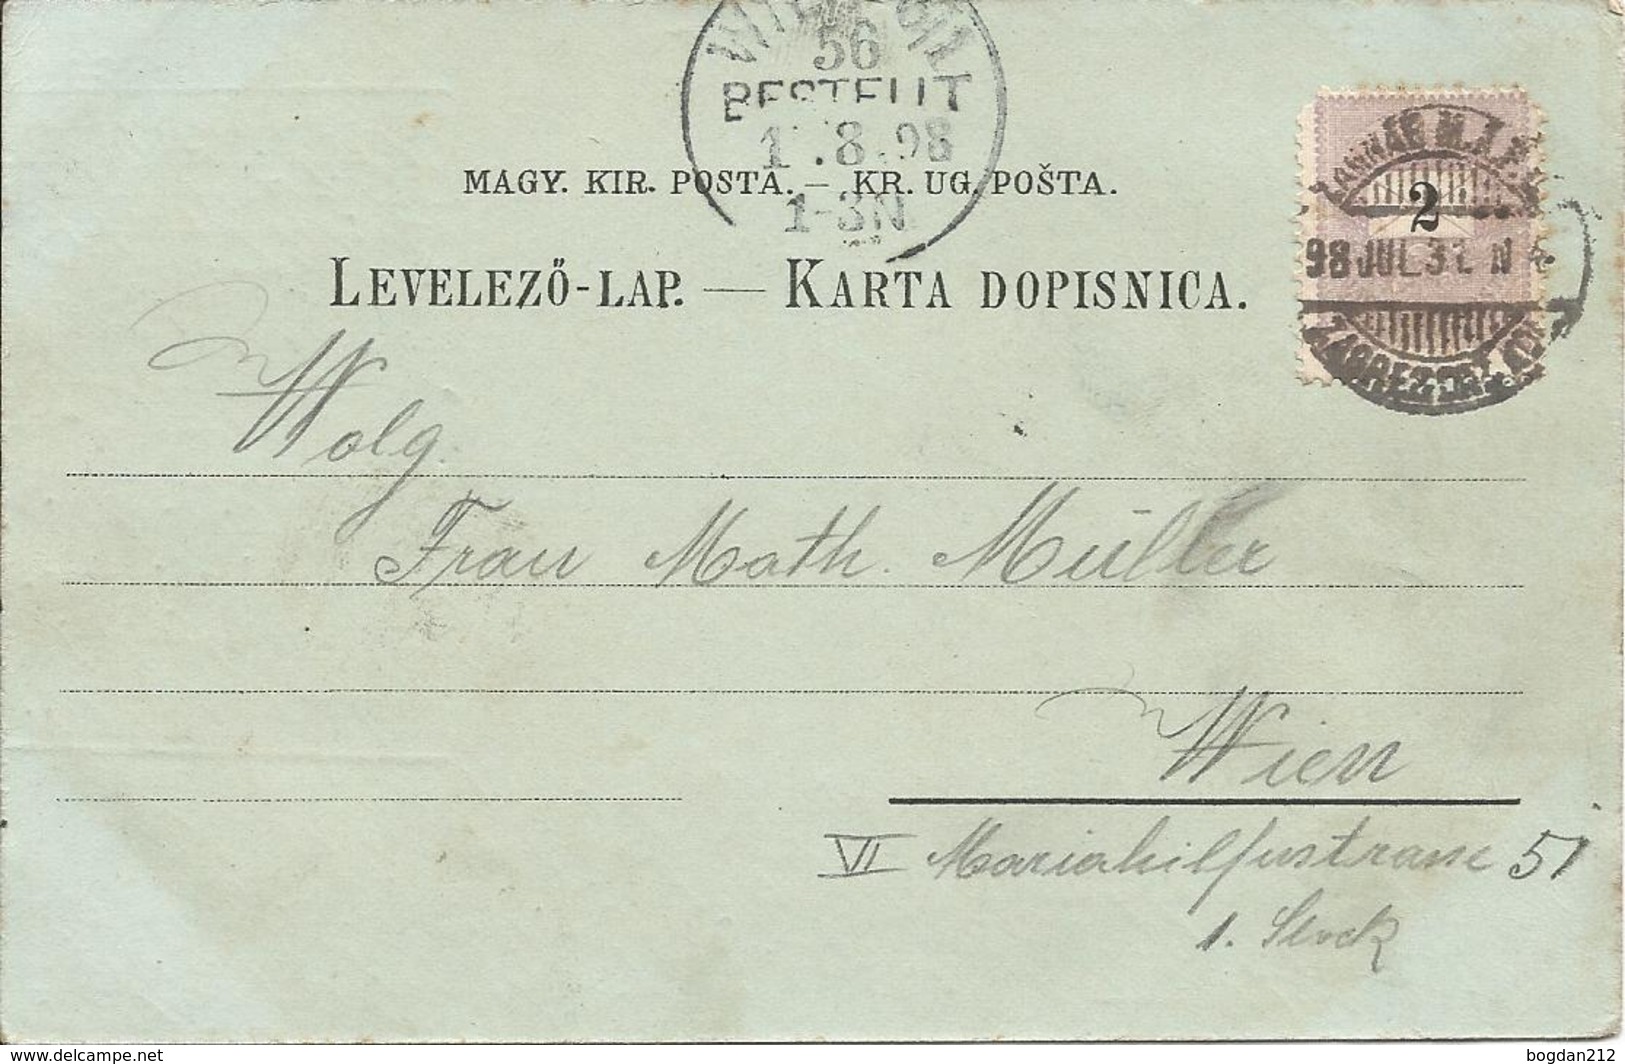 56
BESTELLT
1 .8.98
1-3N
MAGY. KIR. POSTA. — KR. UG. POŠTA.
2
98 JUL 31 N
LEVELEZŐ-LAP. — KARTA DOPISNICA.
Wolg.
Frau Math. Müller
Wien
VI Mariahilferstrasse 51
1. Stock
www.delcampe.net
bogdan212